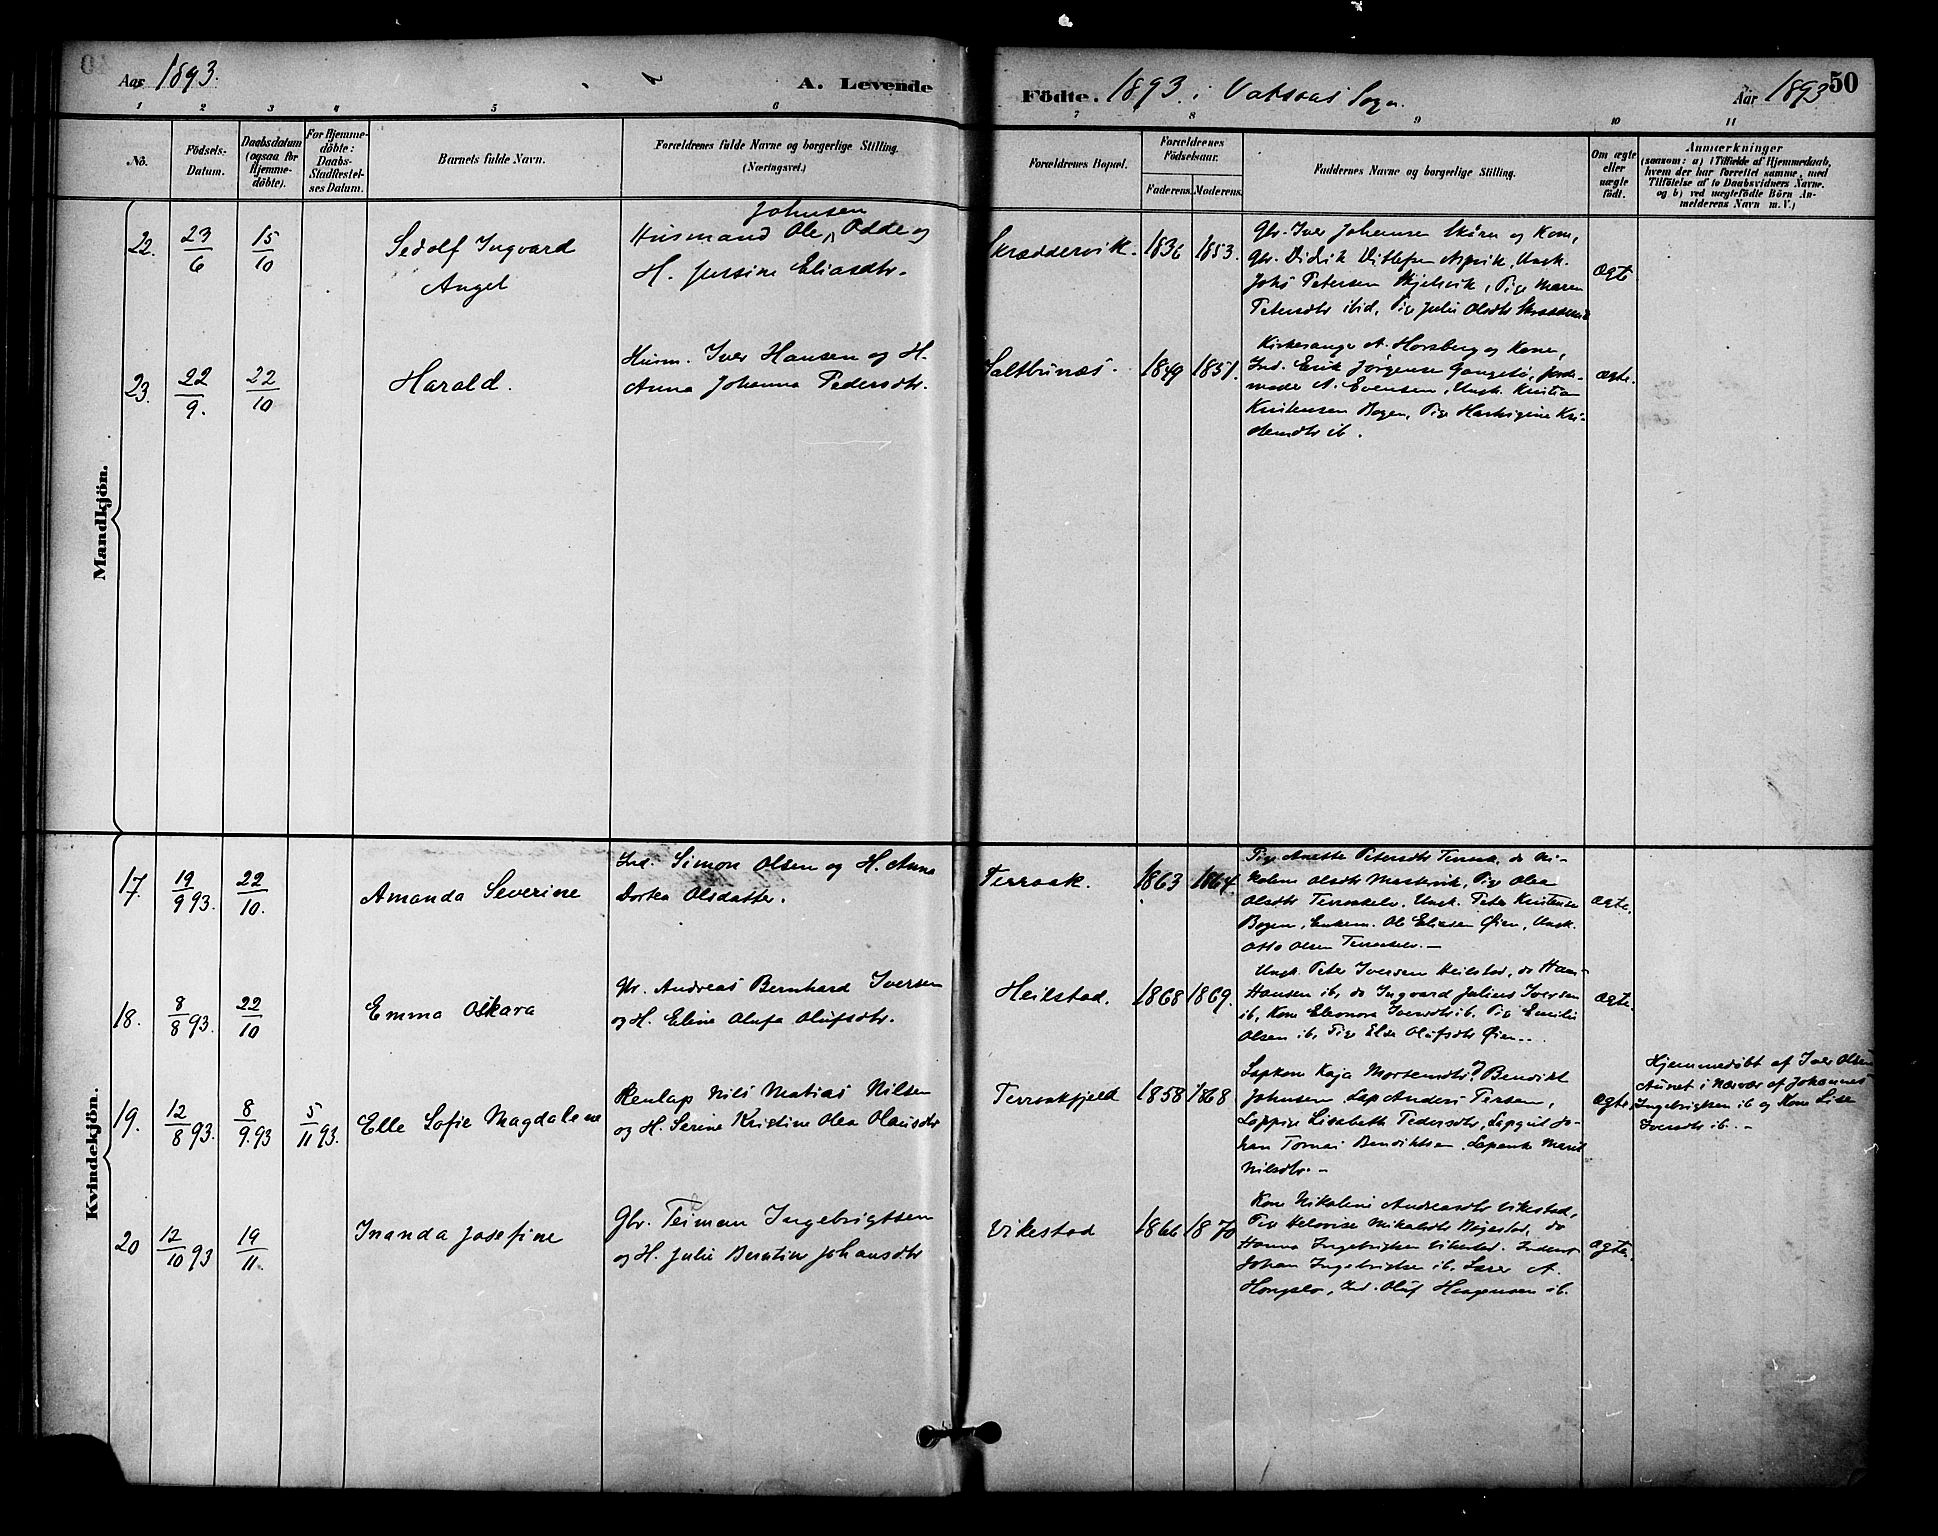 Aar 1893.
A. Levende
Födte. 1893. i Vatsaas Sogn.
Aar 1893
50
1 2 3 4 5 6 7 8 9 10 11
No.
Födsels-
Datum.
Daabsdatum
(ogsaa for
Hjemme-
döbte).
For Hjemme-
döbte:
Daabs-
Stadfæstel-
ses Datum.
Barnets fulde Navn.
Forældrenes fulde Navne og borgerlige Stilling.
(Næringsvei.)
Forældrenes Bopæl.
Forældrenes
Födselsaar.
Faderens. Moderens.
Faddernes Navne og borgerlige Stilling.
Om ægte
eller
uægte
födt.
Anmærkninger
(saasom: a) i Tilfælde af Hjemmedaab,
hvem der har forrettet samme, med
Tilföielse af to Daabsvidners Navne.
og b) ved uægtefödte Börn An-
melderens Navn m. V.)
Mandkjön.
22.
23/6
15/10
Sedolf Ingvard
Angel
Johnsen
Husmand Ole Odde og
H. Jessine Eliasdtr.
Skræddervik.
1836
1853.
Gbr. Iver Johansen og Kone,
Gbr. Didrik Ditlefsen Ungk.
Johs Petersen Skjelsvik, Pige Maren
Petersdtr ibid, Pige Julie Olsdtr
ægte
23.
22/9.
22/10
Harald.
Husm. Iver Hansen og H.
Anna Johanna Pedersdtr.
Saltbunæs.
1849
1851.
Kirkesanger A. Horsberg og Kone,
Ind. Erik Jørgensen Gangstø, Jorde-
moder A. Evensen, Ungk. Kristian
Kristensen Bogen, Pige Hartvigine Kri-
stensdtr ib.
ægte.
Kvindekjön.
17.
19/9 93.
22/10.
Amanda Severine
Ind. Simon Olsen og H. Anna
Dortea Olsdatter.
Terraak.
1863
1864.
Pige Anette Petersdtr Terraak, do Ni-
koline Olsdtr Pige Olea
Olsdtr Terraakelv, Ungk. Peter Kristensen
Bogen, Enkem. Ole Eliasen Øien, Ungk.
Otto Olsen Terraakelv.—
ægte.
18.
8/8 93.
22/10
Emma Oskara
Gbr. Andreas Bernhard Iversen
og H. Eline Olufa Olufsdtr.
Heilstad.
1868
1869.
Ungk. Peter Iversen Heilstad, do Hans
Hansen ib, do Ingvard Julius Iversen
ib, Kone Eleonora Iversdtr ib. Pige Emilie
Olsen ib, Pige Else Olufsdtr Øien..
ægte.
19.
12/8 93.
8/9.93
5/11 93.
Elle Sofie Magdalene
Renlap Nils Matias Nilsen
og H. Serine Kristine Olea Olausdtr
Terraakfjeld
1858
1868
Lapkone Kaja Mortensdtr, Bendikt
Johnsen Lap Anders
Lappige Lisabeth Pedersdtr, Lapgut Jo-
han Tomas Bendiktsen, Lapenk Marit
Nilsdtr.—
ægte
Hjemmedøbt af Iver Olsen
Aunet i Nærvær af Johannes
Ingebrigtsen ib og Kone Lise
Iversdtr ib.—
20
12/10 93
19/11.
Inanda Josefine
Gbr. Teiman Ingebrigtsen
og H. Julie Berntine Johansdtr
Vikestad
1866
1870
Kone Nikoline Andreasdtr Vikestad,
Pige Helovise do
Hanna Ingebrigtsen Vikestad.
Johan Ingebrigtsen ib. Lærer A.
Hongslo, Ind. Oluf Haagensen ib.
ægte.